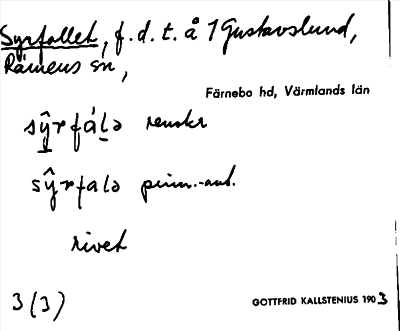 Syrfallet, f.d.t. å 1 Gustavslund,
Rämens sn,
Färnebo hd, Värmlands län
sŷrfálə renskr
sŷrfalə prim.-ant.
rivet
3 (3)
GOTTFRID KALLSTENIUS 1903